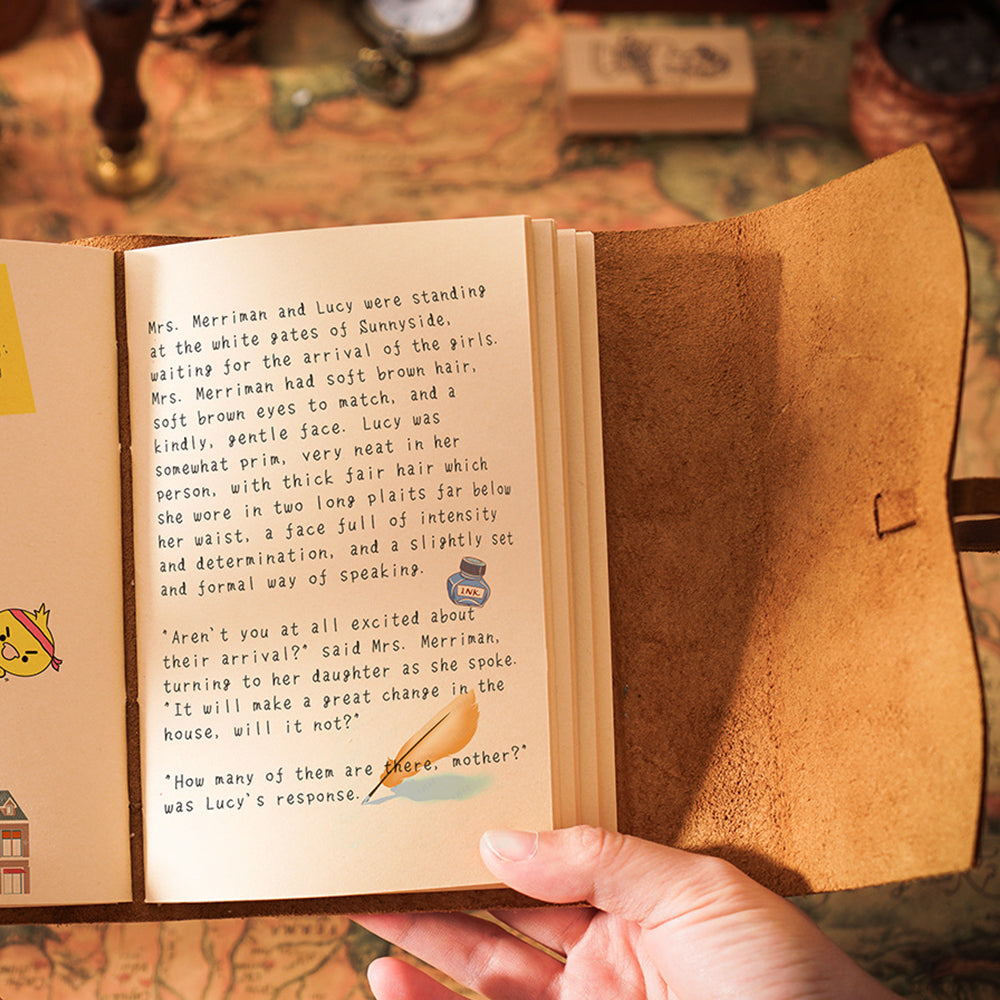 Mrs. Merriman and Lucy were standing
at the white gates of Sunnyside,
waiting for the arrival of the girls.
Mrs. Merriman had soft brown hair,
soft brown eyes to match, and a
kindly, gentle face. Lucy was
somewhat prim, very neat in her
person, with thick fair hair which
she wore in two long plaits far below
her waist, a face full of intensity
and determination, and a slightly set
and formal way of speaking.
INK
"Aren't you at all excited about
their arrival?" said Mrs. Merriman,
turning to her daughter as she spoke.
"It will make a great change in the
house, will it not?"
"How many of them are there, mother?"
was Lucy's response.